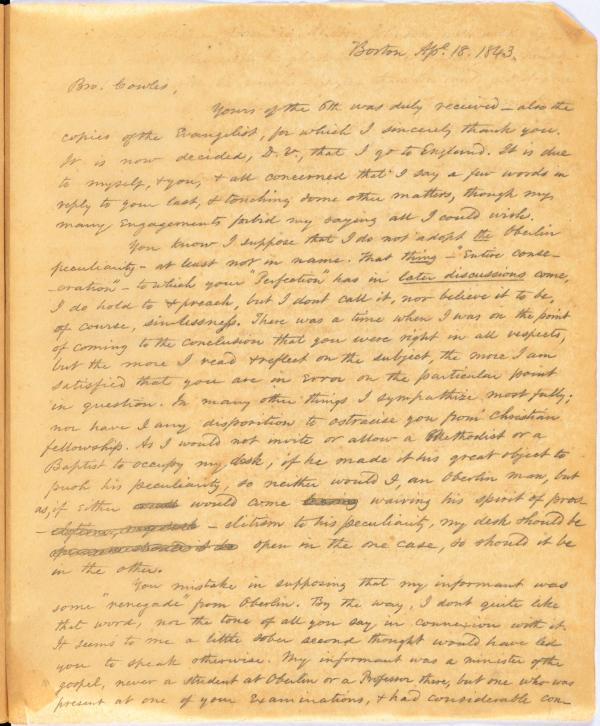 Boston, Apl. 18. 1843.
Bro. Cowles,
Yours of the 6th was duly received – also the
copies of the Evangelist, for which I sincerely thank you.
It is now decided, D.V., that I go to England. It is due
to myself, & you, & all concerned that I say a few words in
reply to your last, & touching some other matters, though my
many Engagements forbid my saying all I could wish.
You know I suppose that I do not adopt the Oberlin
peculiarity – at least not in name. That thing – "Entire conse-
-cration" – to which your "Perfection" has in later discussions come,
I do hold to & preach, but I dont call it, nor believe it to be,
of course, sinlessness. There was a time when I was on the point
of coming to the conclusion that you were right in all respects,
but the more I read & reflect on the subject, the more I am
satisfied that you are in Error on the particular point
in question. In many other things I sympathize most fully;
nor have I any disposition to ostracise you from Christian
fellowship. As I would not invite or allow a Methodist or a
Baptist to occupy my desk, if he made it his great object to
push his peculiarity, so neither would I, an Oberlin man, but
as, if Either would come waiving his spirit of pros-
– elitism to his peculiarity, my desk should be
open in the one case, so should it be
in the other.
You mistake in supposing that my informant was
some "renegade" from Oberlin. By the way, I dont quite like
that word, nor the tone of all you say in connexion with it.
It seems to me a little sober second thought would have led
you to speak otherwise. My informant was a minister of the
gospel, never a student at Oberlin or a Professor there, but one who was
present at one of your Examinations, & had considerable con-